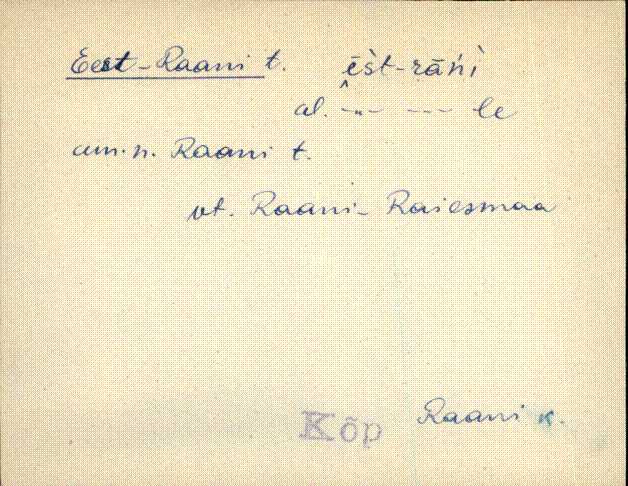 Eest-Raani t. ēšt-rāńì
al. -"- --- le
am. n. Raani t.
vt. Raani- Raiesmaa
Kõp Raani k.